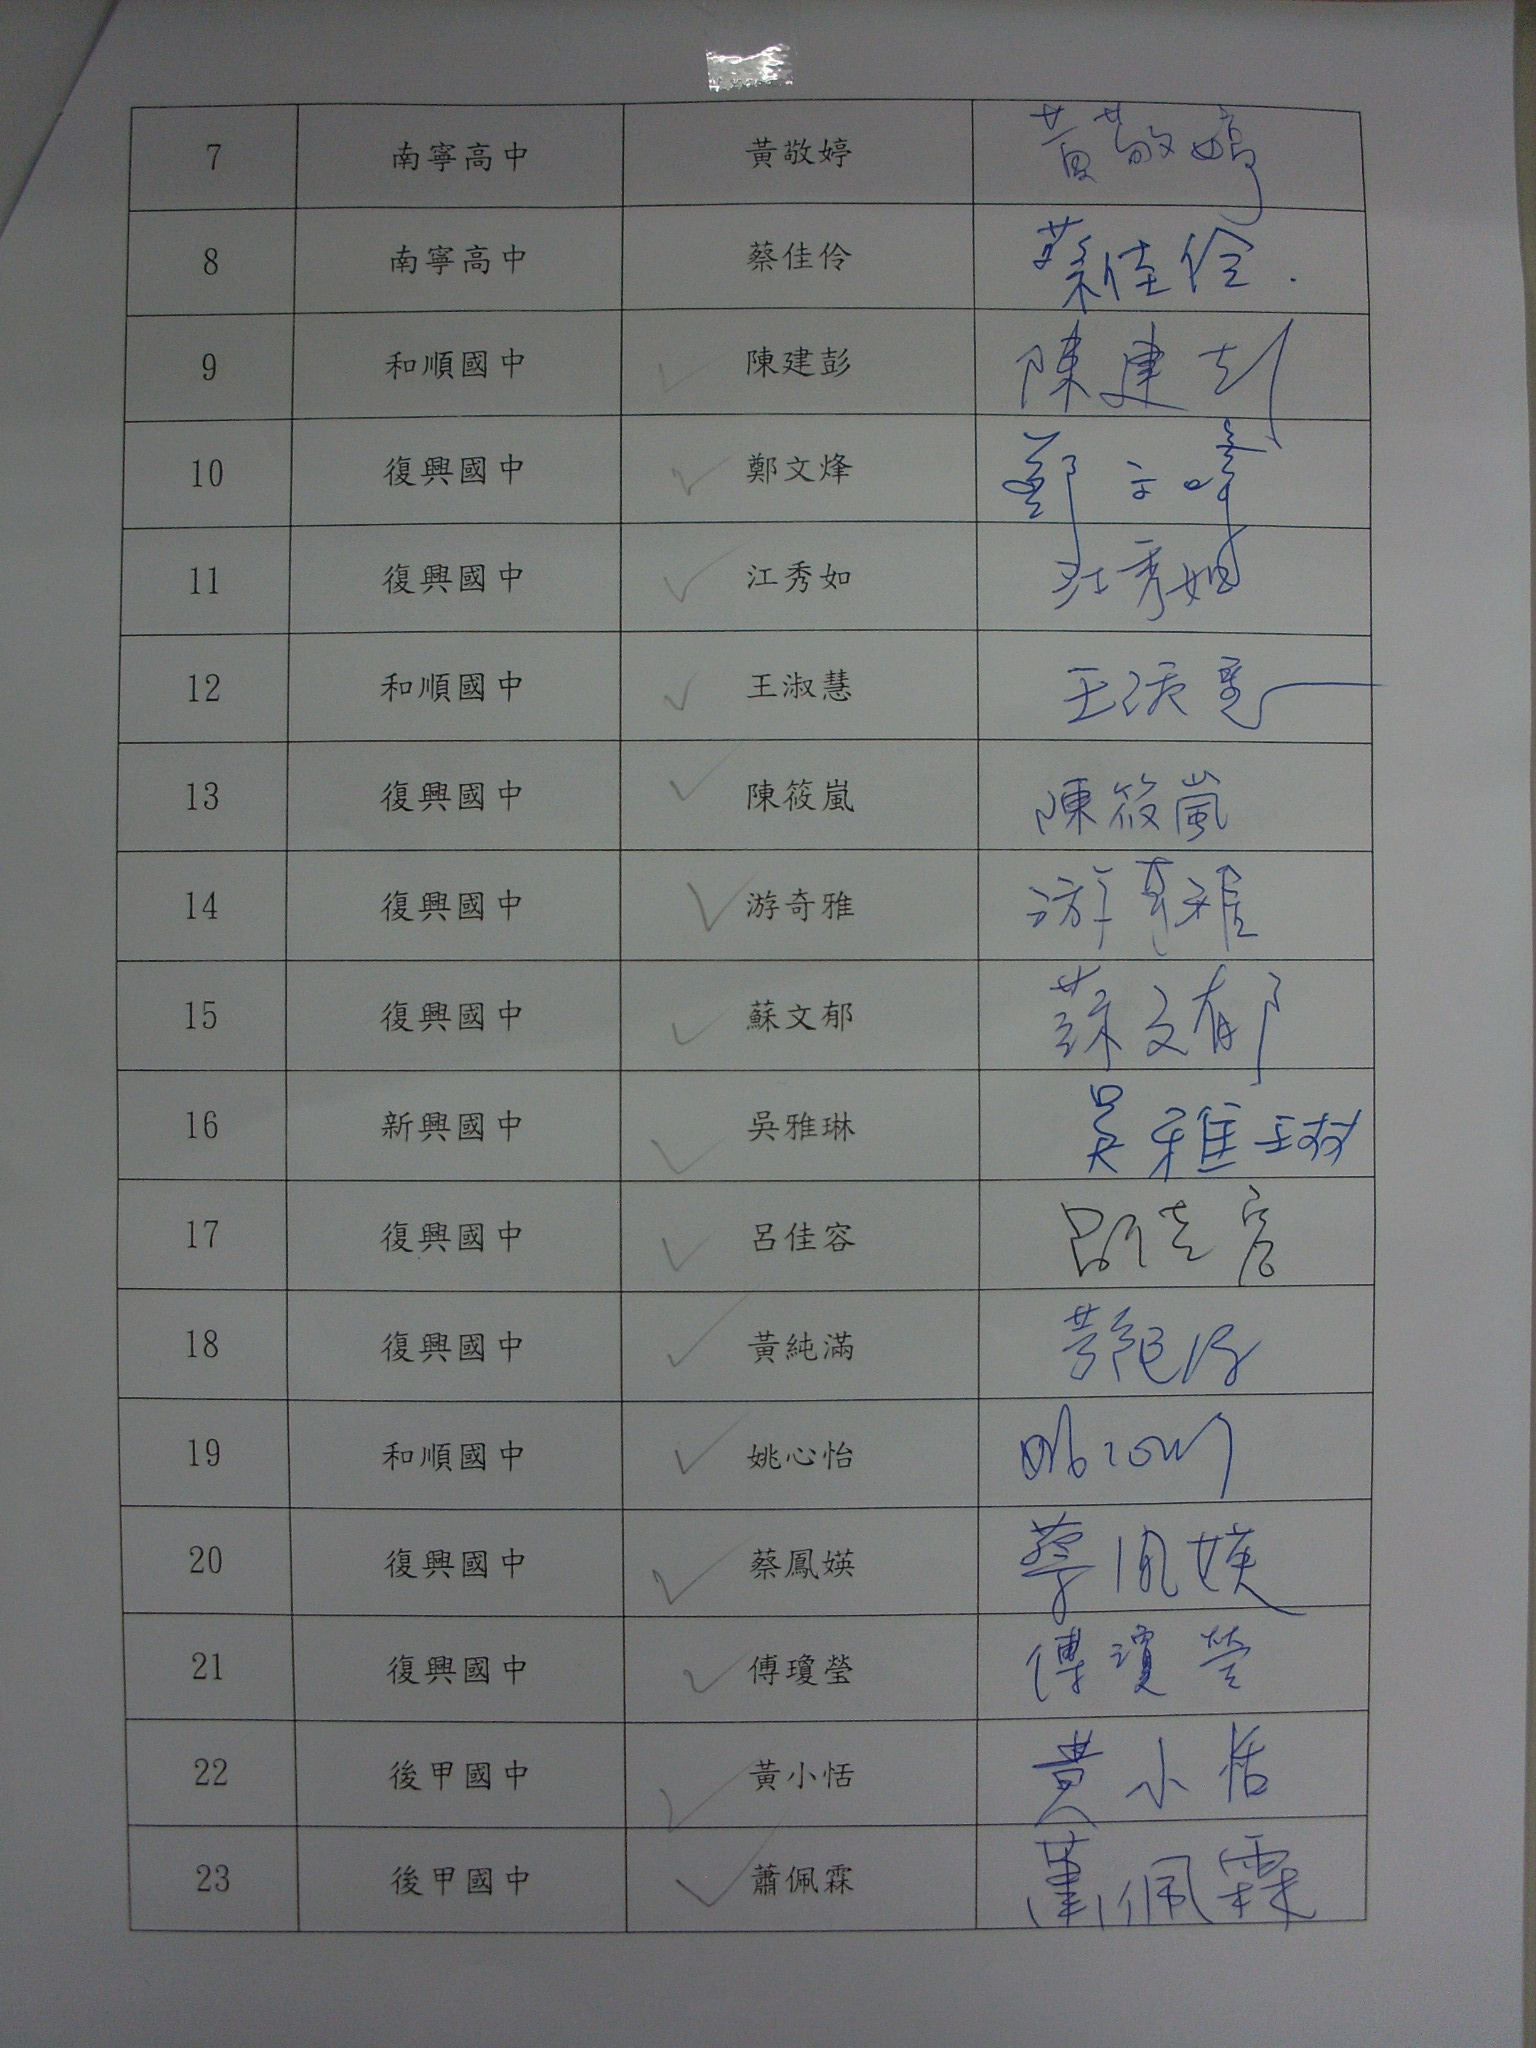 7 南寧高中 黃敬婷 黃敬婷
8 南寧高中 蔡佳伶 蔡佳伶.
9 和順國中 陳建彭 陳建彭
10 復興國中 鄭文烽 鄭文烽
11 復興國中 江秀如 江秀如
12 和順國中 王淑慧 王淑慧
13 復興國中 陳筱嵐 陳筱嵐
14 復興國中 游奇雅 游奇雅
15 復興國中 蘇文郁 蘇文郁
16 新興國中 吳雅琳 吳雅琳
17 復興國中 呂佳容 呂佳容
18 復興國中 黃純滿 黃純滿
19 和順國中 姚心怡 姚心怡
20 復興國中 蔡鳳媖 蔡鳳媖
21 復興國中 傅瓊瑩 傅瓊瑩
22 後甲國中 黃小恬 黃小恬
23 後甲國中 蕭佩霖 蕭佩霖